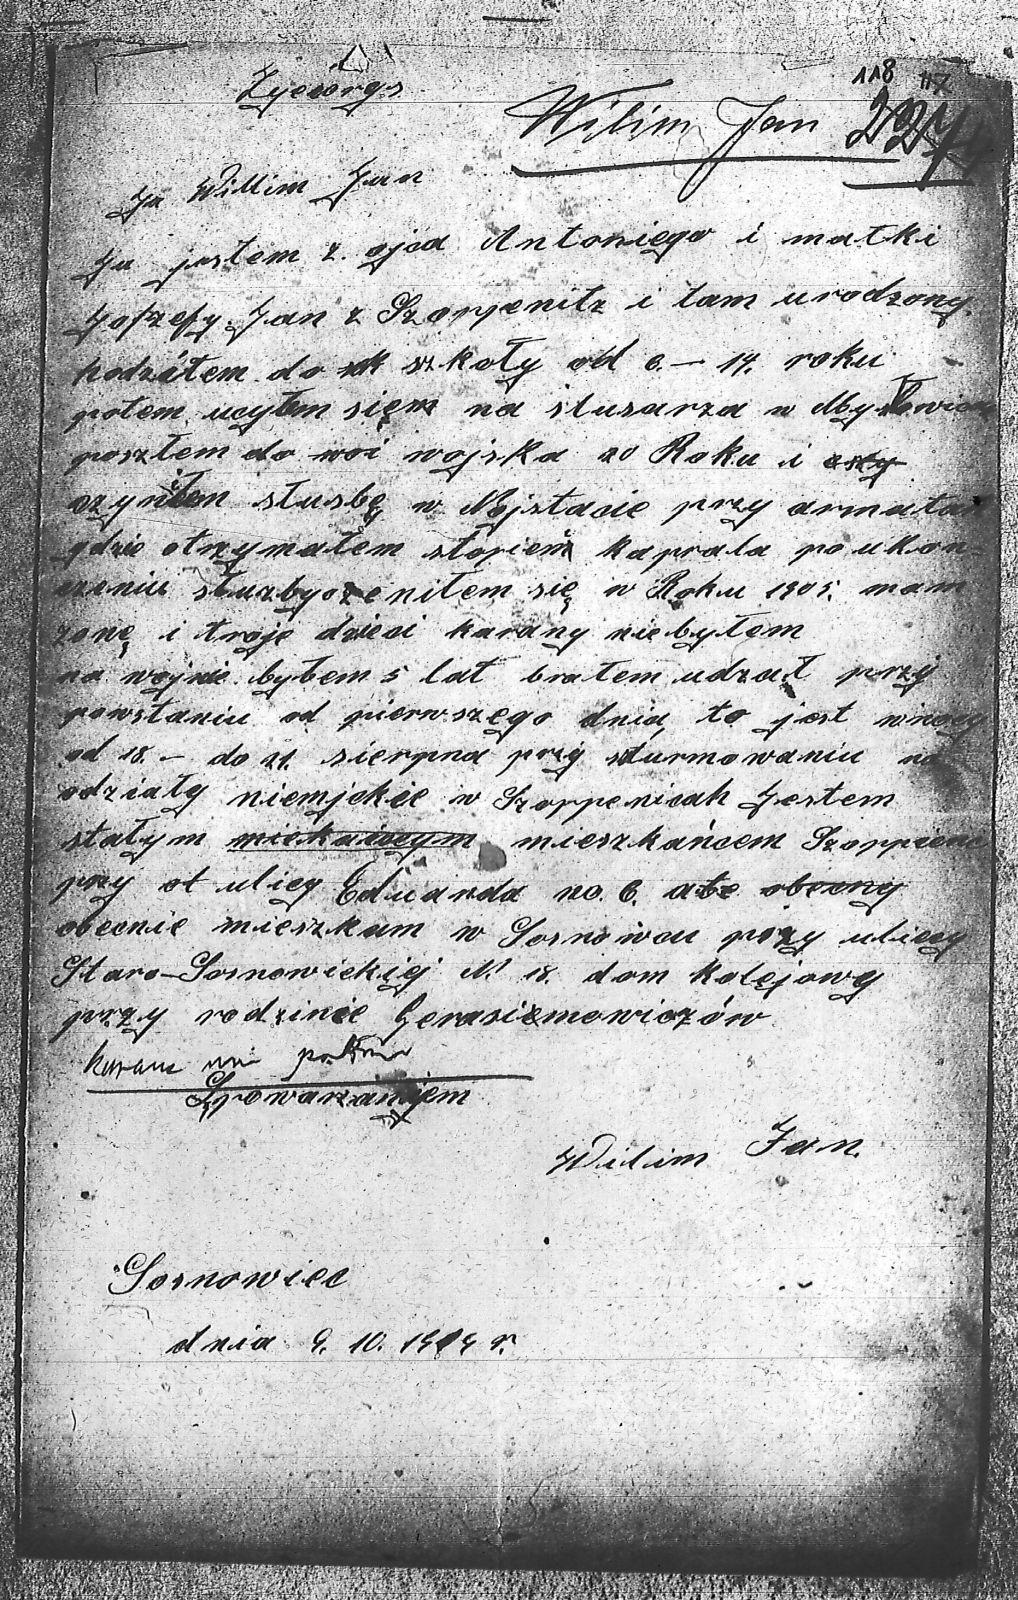 118
Życiorys
Wilim Jan
Ja Willim Jan
Ja jestem z. ojca Antoniego i matki
Jofzefy. Jan z Szoppenitz i tam urodzony.
hodzółem do szkoły od 6. – 14. roku
potem ucyłem sięm na slusarza w Mysłowicach
poszłem do woi wojska 20 Roku i
czyniłem slusbę w Nojstacie przy armatach
gdzie otrzymałem stopień kaprala po ukon
czeniu służby ożeniłem się w Roku 1905. mam
żonę i troje dzieci karany niebyłem
na wojnie byłem 5 lat brałem udzał przy
powstaniu od pierwszego dnia, to jest w nocy
od 18. – do 21. sierpna przy szturmowaniu na
odziały niemjckie w Szoppenicah Jestem
stałym mieszkańcem Szoppienic
przy ulicy Eduarda no. 6. ale obecny
obecnie mieszkam w Sosnowcu przy ulicy
Staro-Sosnowickiej N. 18. dom kolejowy
przy rodzinie Gerasiemowiczów
Spowarzaniem
Wilim Jan.
Sosnowiec
dnia 9. 10. 1919 r.